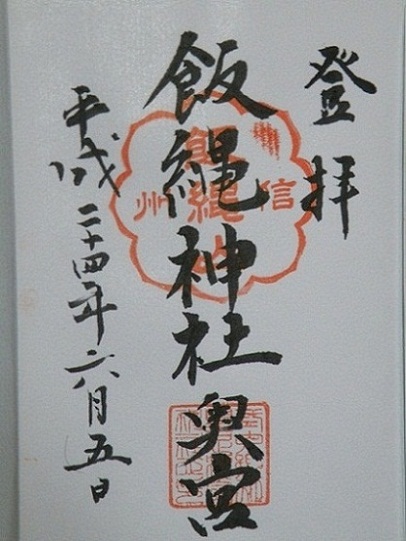 登拝
飯縄神社奥宮
平成二十四年六月五日
信州
飯縄